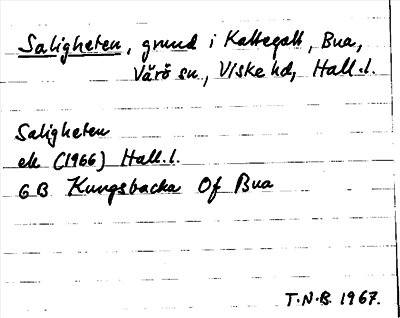 Saligheten, grund i Kattegatt, Bua,
Värö sn, Viske hd, Hall.l.
Saligheten
ek (1966) Hall.l.
6 B Kungsbacka Of Bua
T.N.B. 1967.